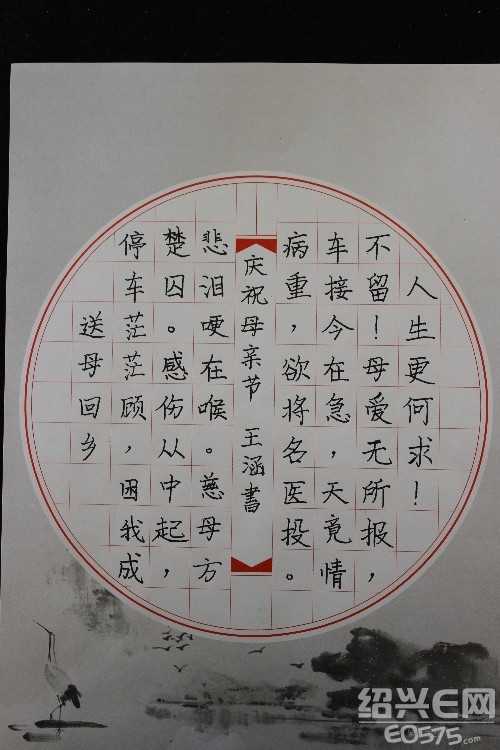 送母回乡
停车茫茫顾，困我成
楚囚。感伤从中起，
悲泪哽在喉。慈母方
病重，欲将名医投。
车接今在急，天竟情
不留！母爱无所报，
人生更何求！
庆祝母亲节 王涵書
绍兴E网
E0575.com